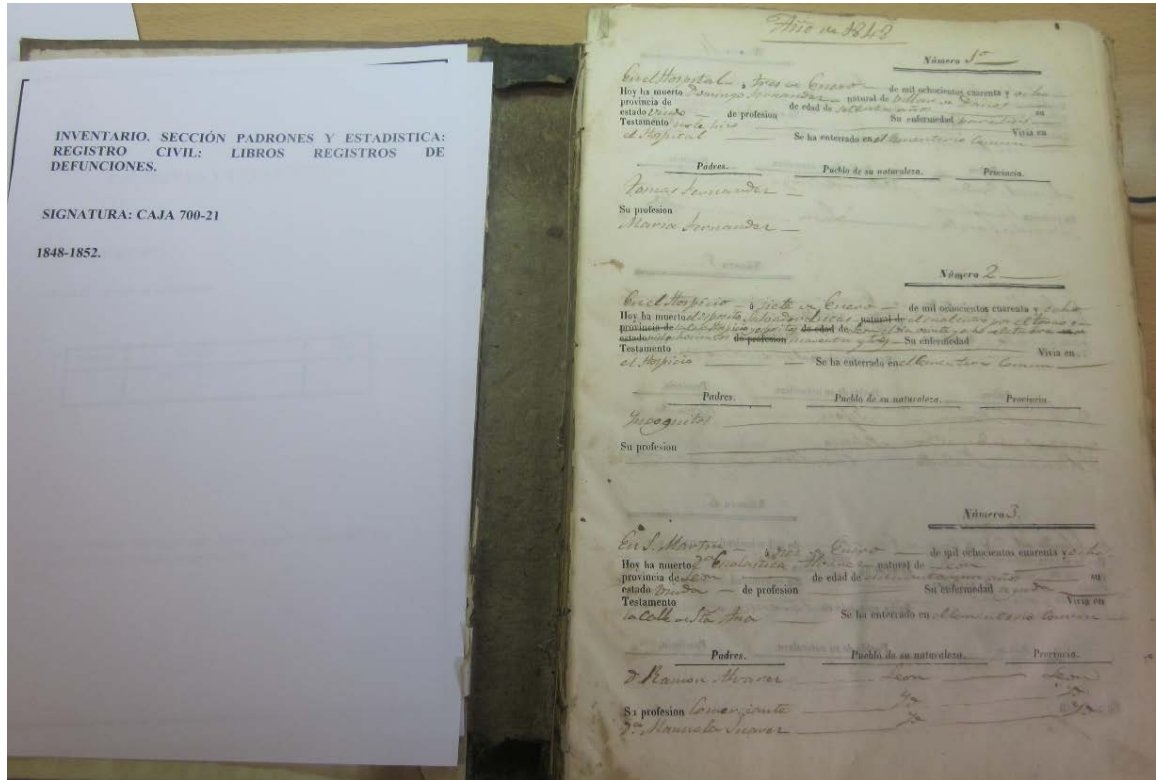 INVENTARIO. SECCIÓN PADRONES Y ESTADISTICA:
REGISTRO CIVIL: LIBROS REGISTROS DE
DEFUNCIONES.
SIGNATURA: CAJA 700-21
1848-1852.
Año de 1848
Número 1º
En el Hospital a tres de Enero de mil ochocientos cuarenta y ocho
Hoy ha muerto Domingo Fernandez natural de
provincia de de edad de setenta años su
estado Viudo de profesion Su enfermedad
Testamento no le hizo Vivia en
el Hospital Se ha enterrado en el Cementerio Comun
Padres. Pueblo de su naturaleza. Provincia.
Tomas Fernandez
Su profesion
Maria Fernandez
Número 2
En el Hospicio a siete de Enero de mil ochocientos cuarenta y ocho
Hoy ha muerto el esposito natural de
provincia de de edad de
estado de profesion Su enfermedad
Testamento Vivia en
el Hospicio Se ha enterrado en el Cementerio Comun
Padres. Pueblo de su naturaleza. Provincia.
Incognitos
Su profesion
Número 3.
En S. Martin a diez de Enero de mil ochocientos cuarenta y ocho
Hoy ha muerto Dª Escolastica Alvarez natural de Leon
provincia de Leon de edad de años su
estado Viuda de profesion Su enfermedad
Testamento Vivia en
la Calle de Sta Ana Se ha enterrado en el Cementerio Comun
Padres. Pueblo de su naturaleza. Provincia.
D. Ramon Alvarez Leon Leon
Su profesion Comerciante
Dª Manuela Suarez